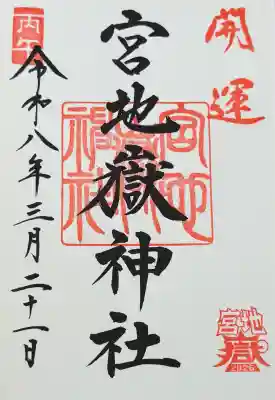 開運
宮地嶽神社
宮地嶽神社
宮地嶽
2026
丙午
令和八年三月二十一日